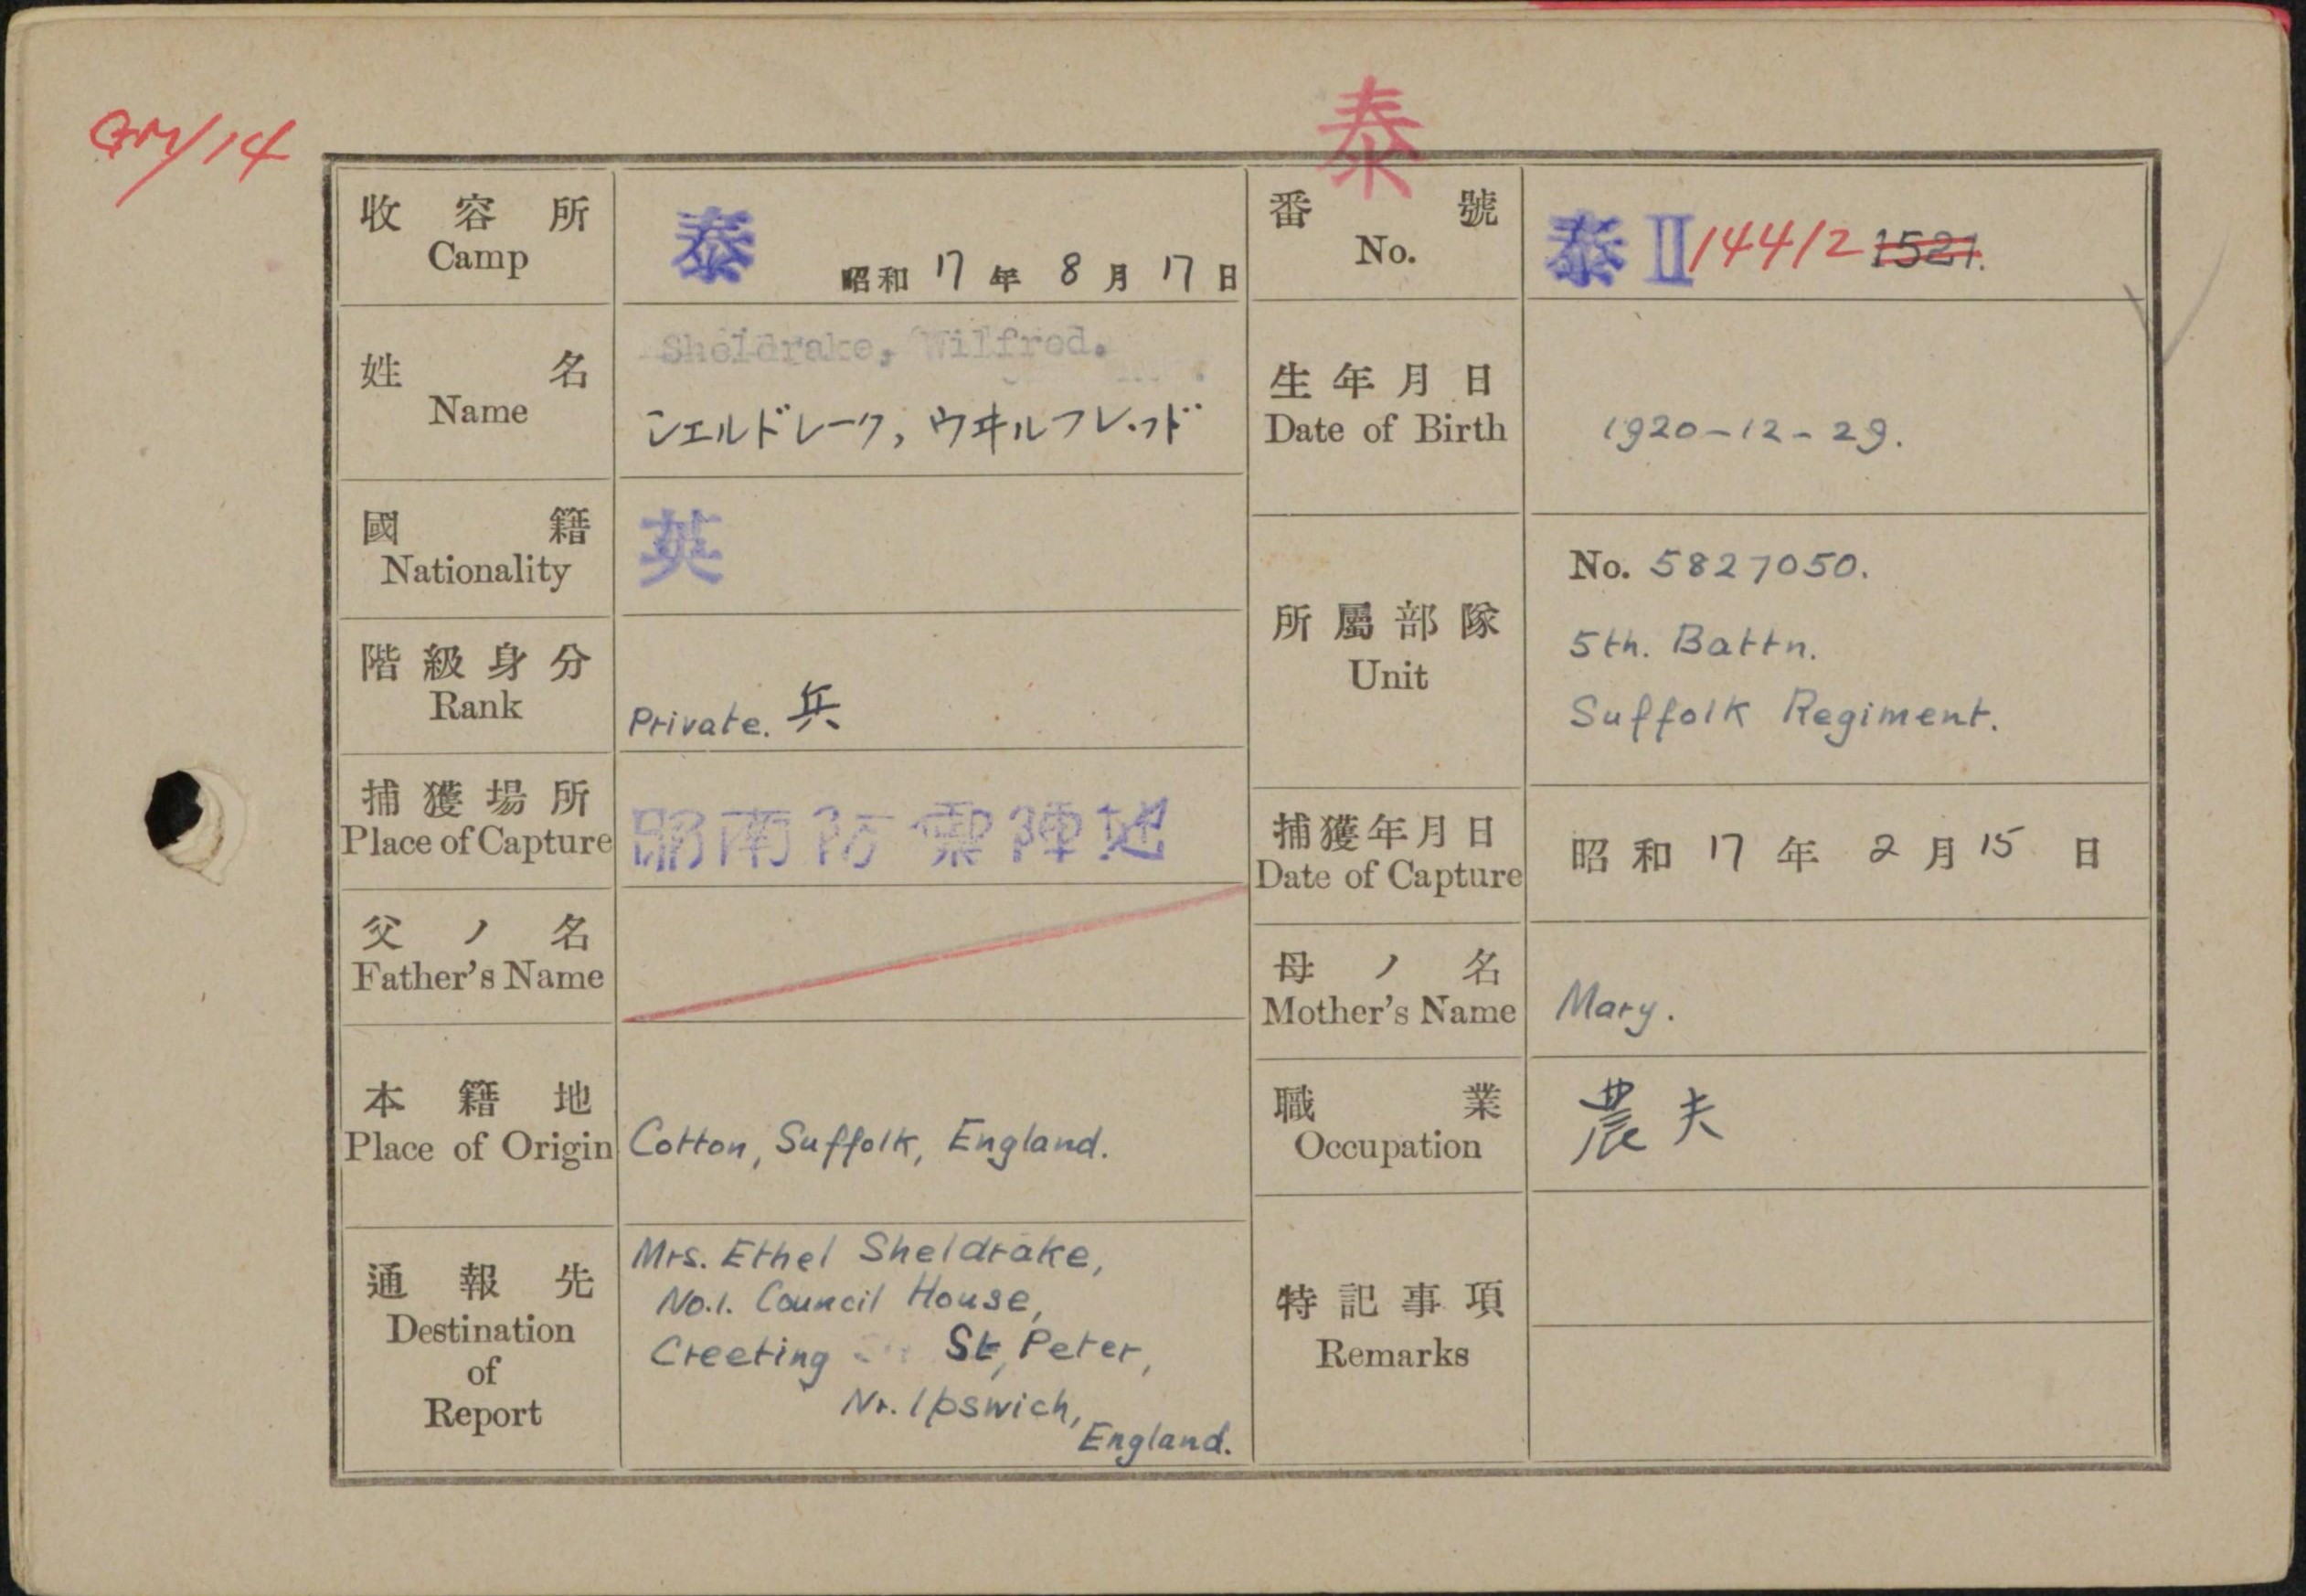 泰
収容所
Camp
泰
昭和 17 年 8 月 17 日
番號
No.
泰 II 14412 1521.
姓名
Name
Sheldrake, Wilfred.
シエルドレーク, ウヰルフレッド
生年月日
Date of Birth
1920-12-29.
國籍
Nationality
英
階級身分
Rank
Private. 兵
所屬部隊
Unit
No. 5827050.
5th. Battn.
Suffolk Regiment.
捕獲場所
Place of Capture
昭南防禦陣地
捕獲年月日
Date of Capture
昭和 17 年 2 月 15 日
父ノ名
Father's Name
母ノ名
Mother's Name
Mary.
本籍地
Place of Origin
Cotton, Suffolk, England.
職業
Occupation
農夫
通報先
Destination
of
Report
Mrs. Ethel Sheldrake,
No.1. Council House,
Creeting St, Peter,
Nr. Ipswich,
England.
特記事項
Remarks